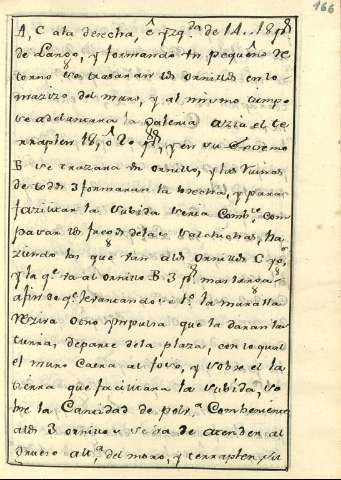 166
A, C ala derecha, è yzq.da de 14..18 ps.
de Largo, y formando un pequeño de
torno se trasaran los ornillos en lo
mazizo del muro, y al mismo tiempo
se adelantara la galeria azia el te
rraplen 18, ò 20 ps, y en su Extremo
B se trazara otro ornillo, y las ruinas
de todos 3 formaran la brecha, y para
fazilitar la subida seria Comb.te Com
pasar los fuegos de las salchichas, ha
ziendo las que van alos ornillos C
y la q.e va al ornillo B 3 ps. mas larga
afin de q.e levantandose la muralla
reziva otro ympulso que la daran la
tierra, departe dela plaza, con lo qual
el muro Caera al foso, y sobre el la
tierra que facilitara la subida, so
bre la Cantidad de polv.a Combeniente
alos 3 ornillos se ha de atender al
grueso alt.a del muro, y terraplen sin